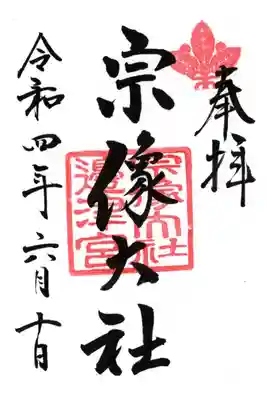 奉拝
宗像大社
宗像大社
邊津宮
令和四年六月十日